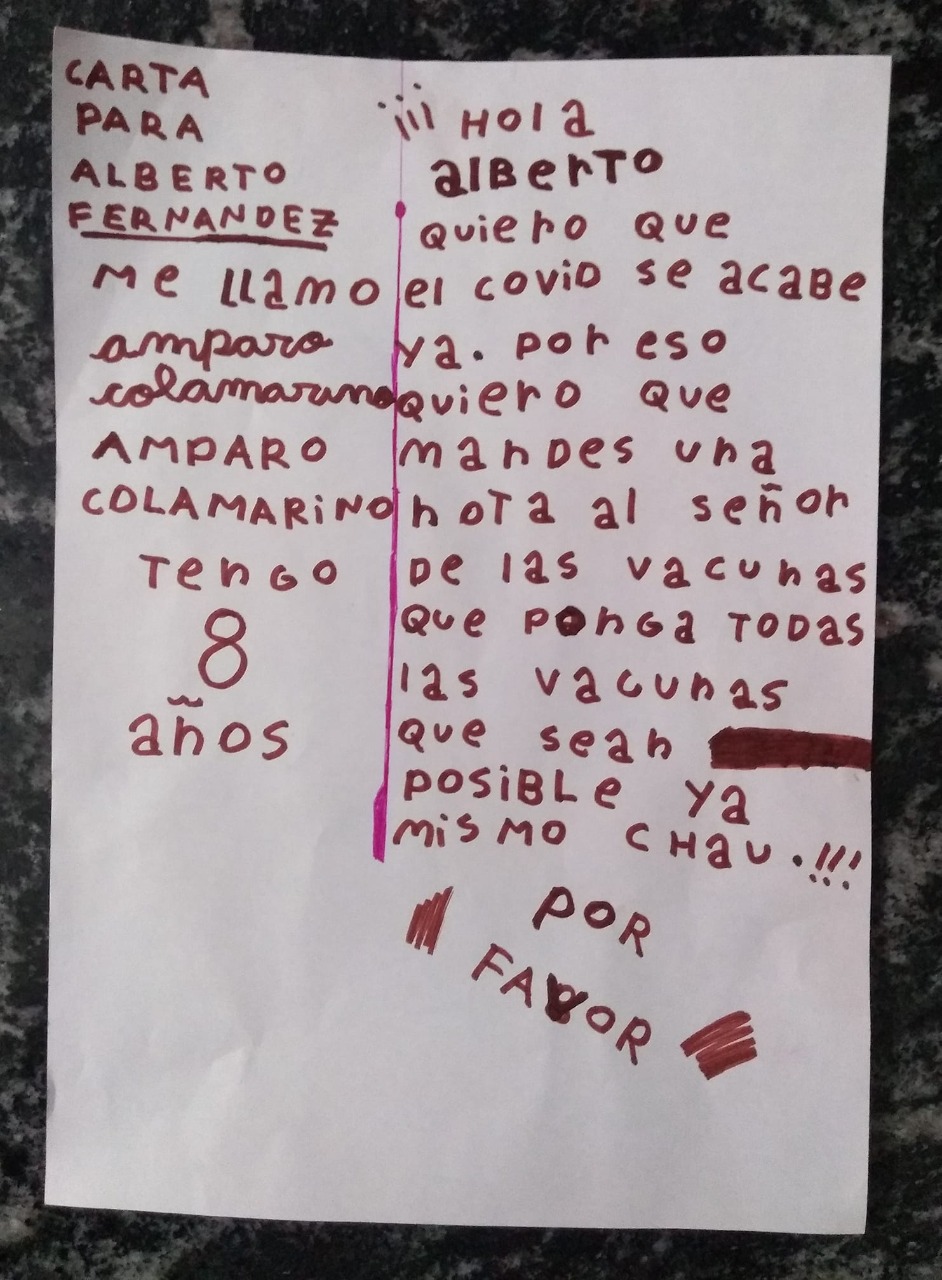 CARTA
PARA
ALBERTO
FERNANDEZ
Me LLamo
amparo
colamarino
AMPARO
COLAMARiNO
Tengo
8
años
¡¡¡ Hola
alBerTo
quiero que
el coviD se acaBe
ya. por eso
quiero que
manDes una
noTa al señor
De las vacunas
que ponGa TODas
las vacunas
que sean
posiBLe ya
mismo CHau.!!!
POR
FAVOR